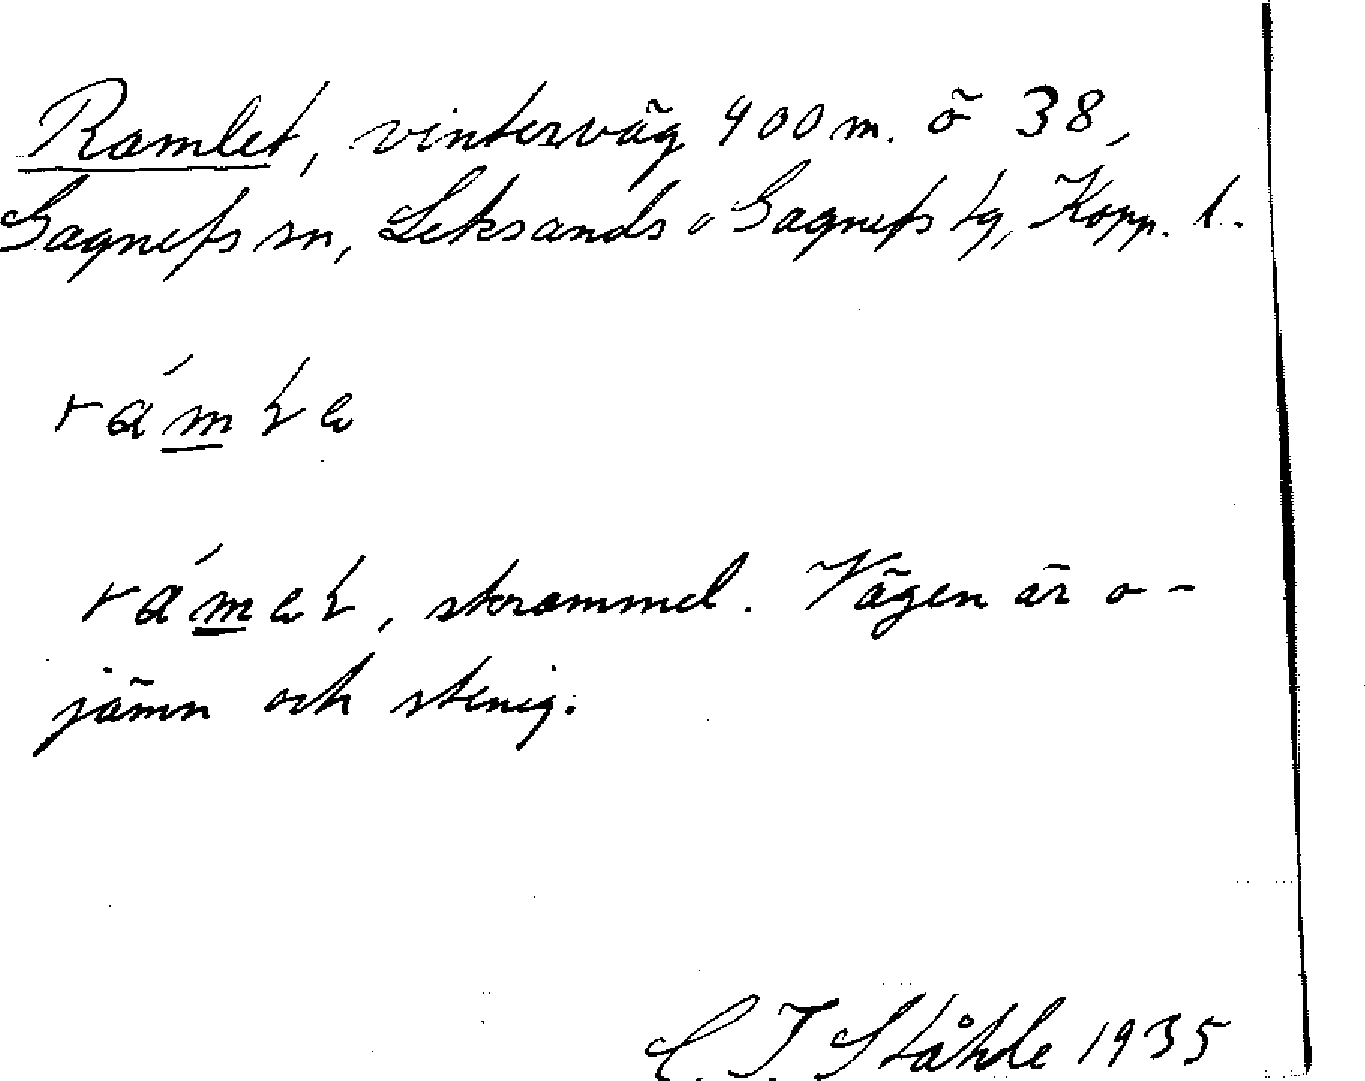 Ramlet, vinterväg 400 m. ö 38,
Gagnefs sn, Leksands o Gagnefs tg, Kopp. l.
skrammel. Vägen är o-
jämn och stenig.
C. I. Ståhle 1935